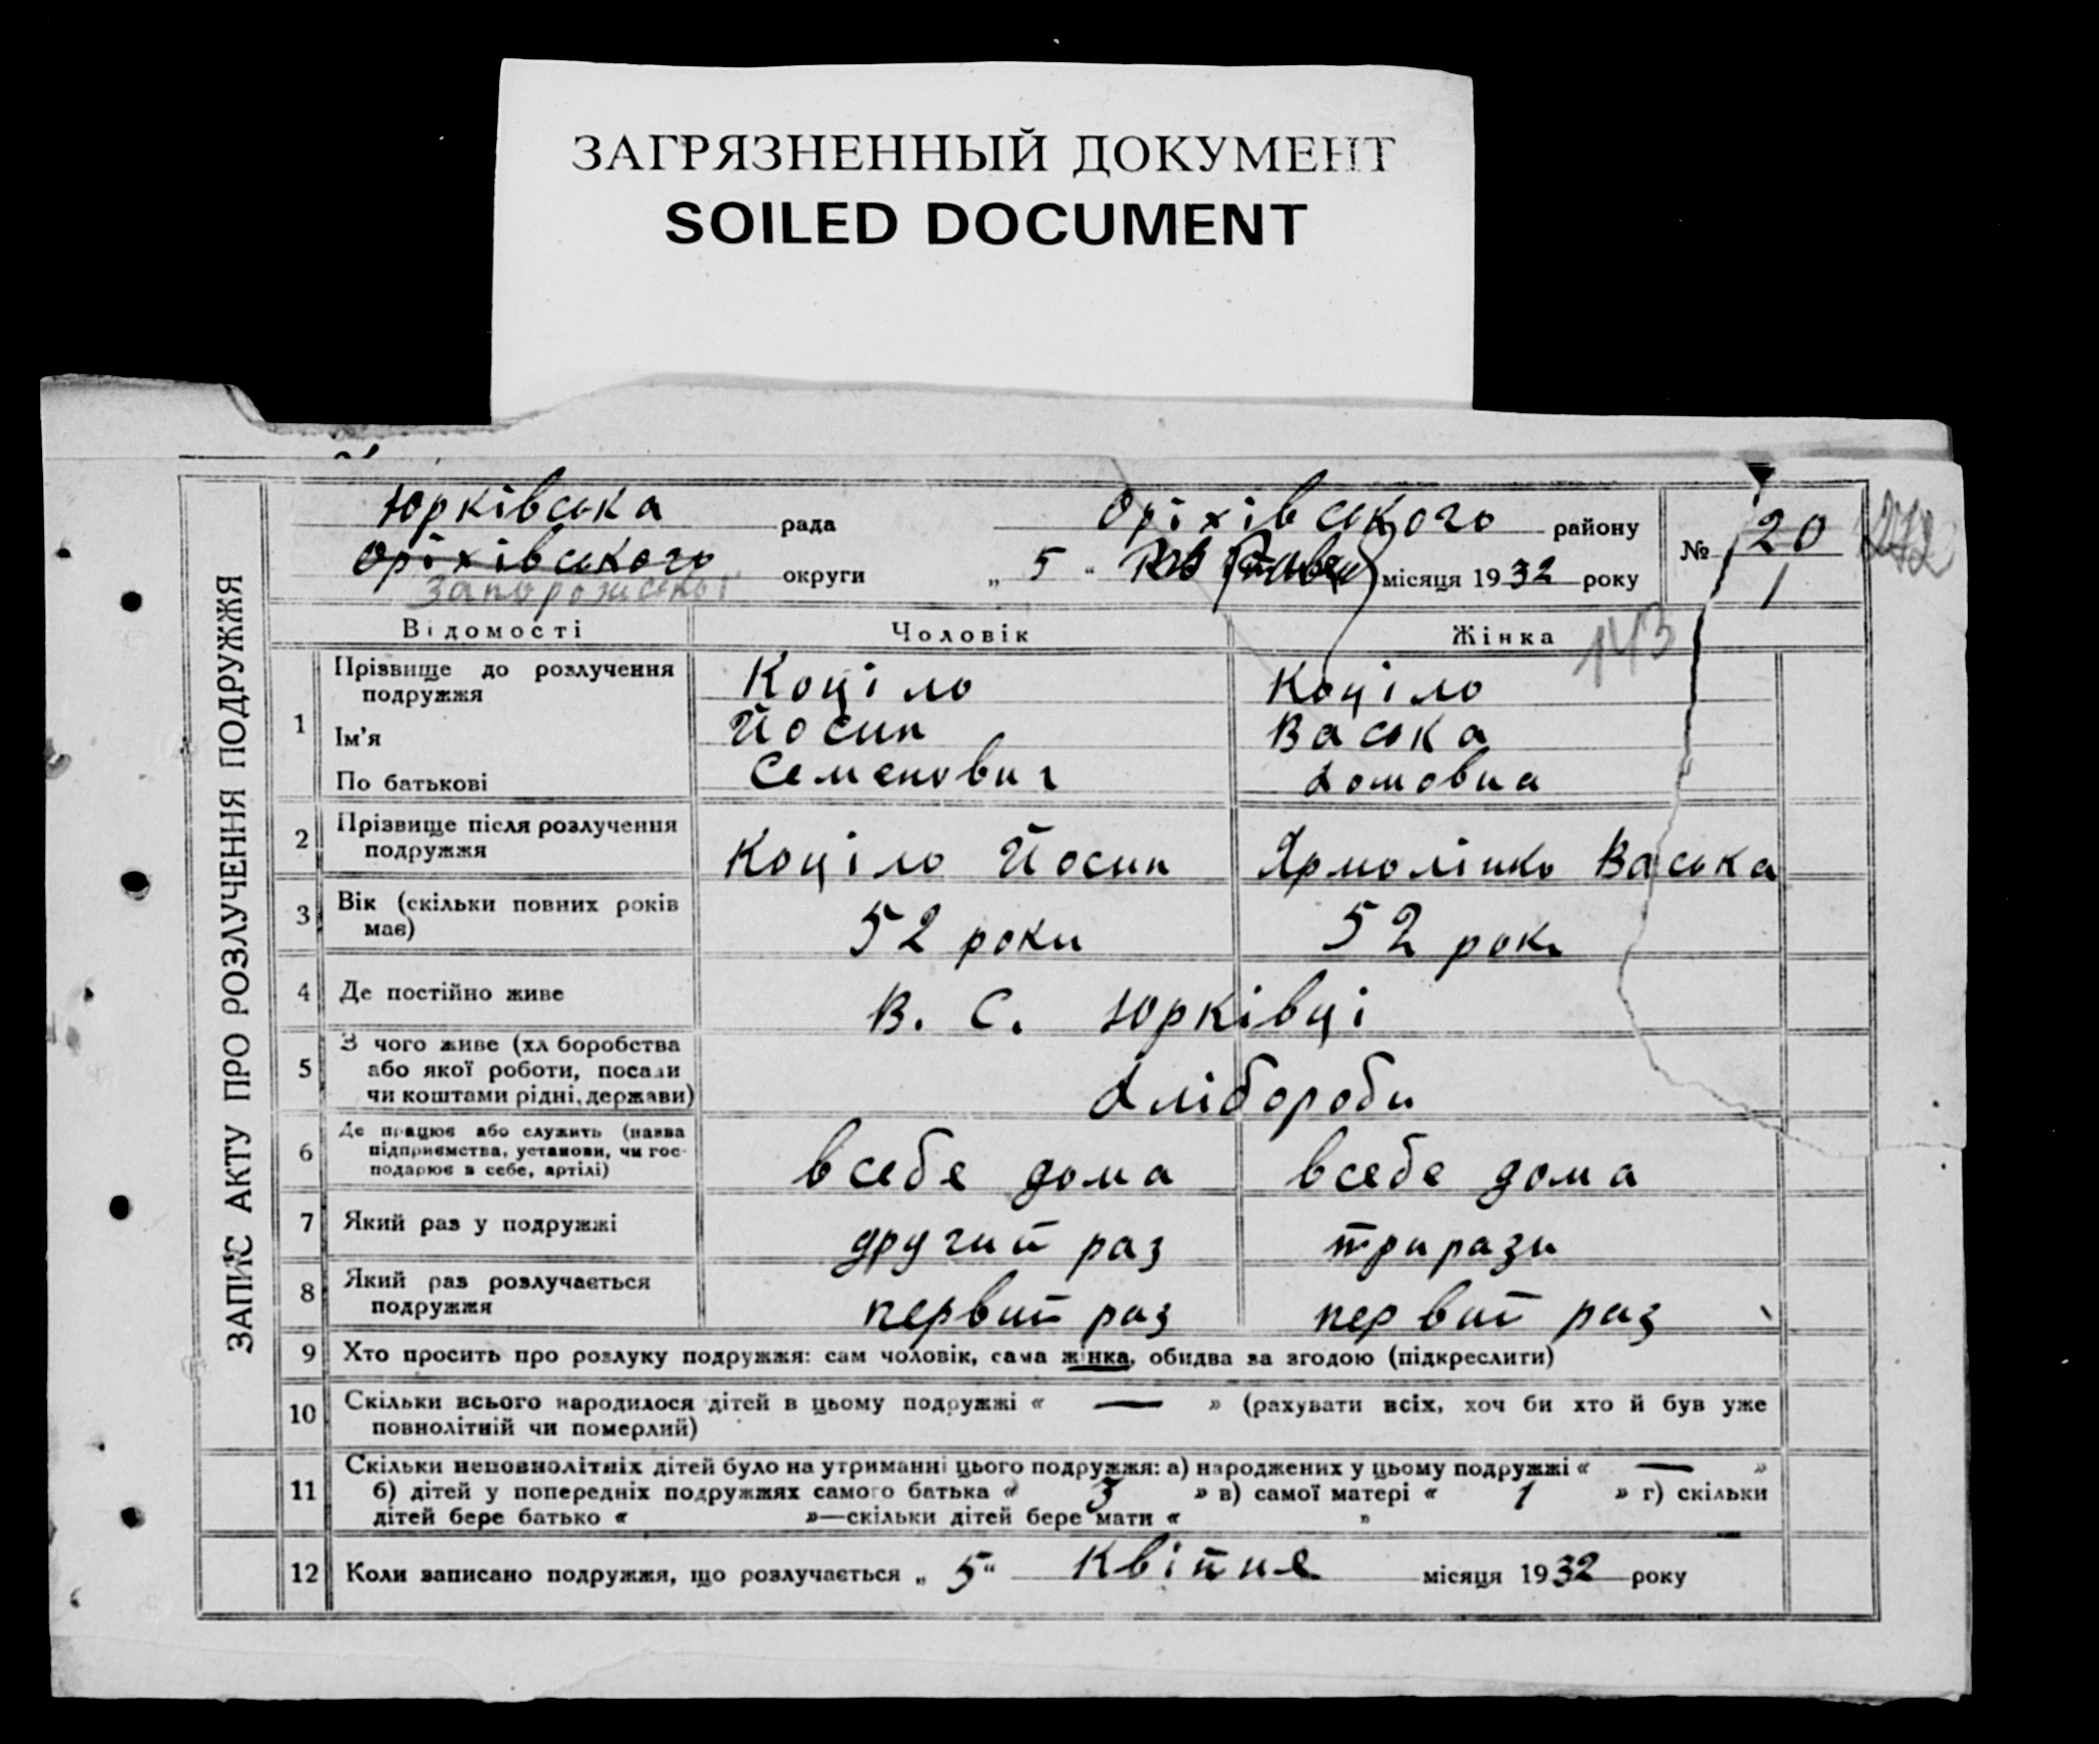 ЗАГРЯЗНЕННЫЙ ДОКУМЕНТ
SOILED DOCUMENT
ЗАПИС АКТУ ПРО РОЗЛУЧЕННЯ ПОДРУЖЖЯ
Юрківська рада Оріхівського району
№ 20
1
Оріхівського округи „ 5 “ місяця 1932 року
Запорожської
143
Відомості Чоловік Жінка
1 Прізвище до розлучення подружжя Коціло Коціло
Ім'я Йосип Васька
По батькові Семенович Хомовна
2 Прізвище після розлучення подружжя Коціло Йосип Ярмолінко Васька
3 Вік (скільки повних років має) 52 роки 52 рок
4 Де постійно живе В. С. Юрківці
5 З чого живе (хл боробства
або якої роботи, посади
чи коштами рідні, держави) Хлібороби
6 Де працює або служить (назва
підприємства, установи, чи гос-
подарює в себе, артілі) всебе дома всебе дома
7 Який раз у подружжі другий раз три рази
8 Який раз розлучається подружжя первий раз первий раз
9 Хто просить про розлуку подружжя: сам чоловік, сама жінка, обидва за згодою (підкреслити)
10 Скільки всього народилося дітей в цьому подружжі « — » (рахувати всіх, хоч би хто й був уже
повнолітній чи померлий)
11 Скільки неповнолітніх дітей було на утриманні цього подружжя: а) народжених у цьому подружжі « — »
б) дітей у попередніх подружжях самого батька « 3 » в) самої матері « 1 » г) скільки
дітей бере батько « »—скільки дітей бере мати « »
12 Коли записано подружжя, що розлучається „ 5 “ Квітне місяця 1932 року